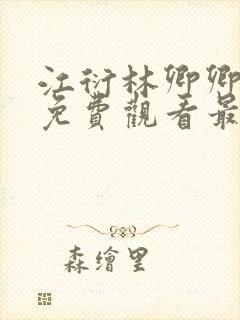 江衍林卿卿
免費觀看最
森繪里